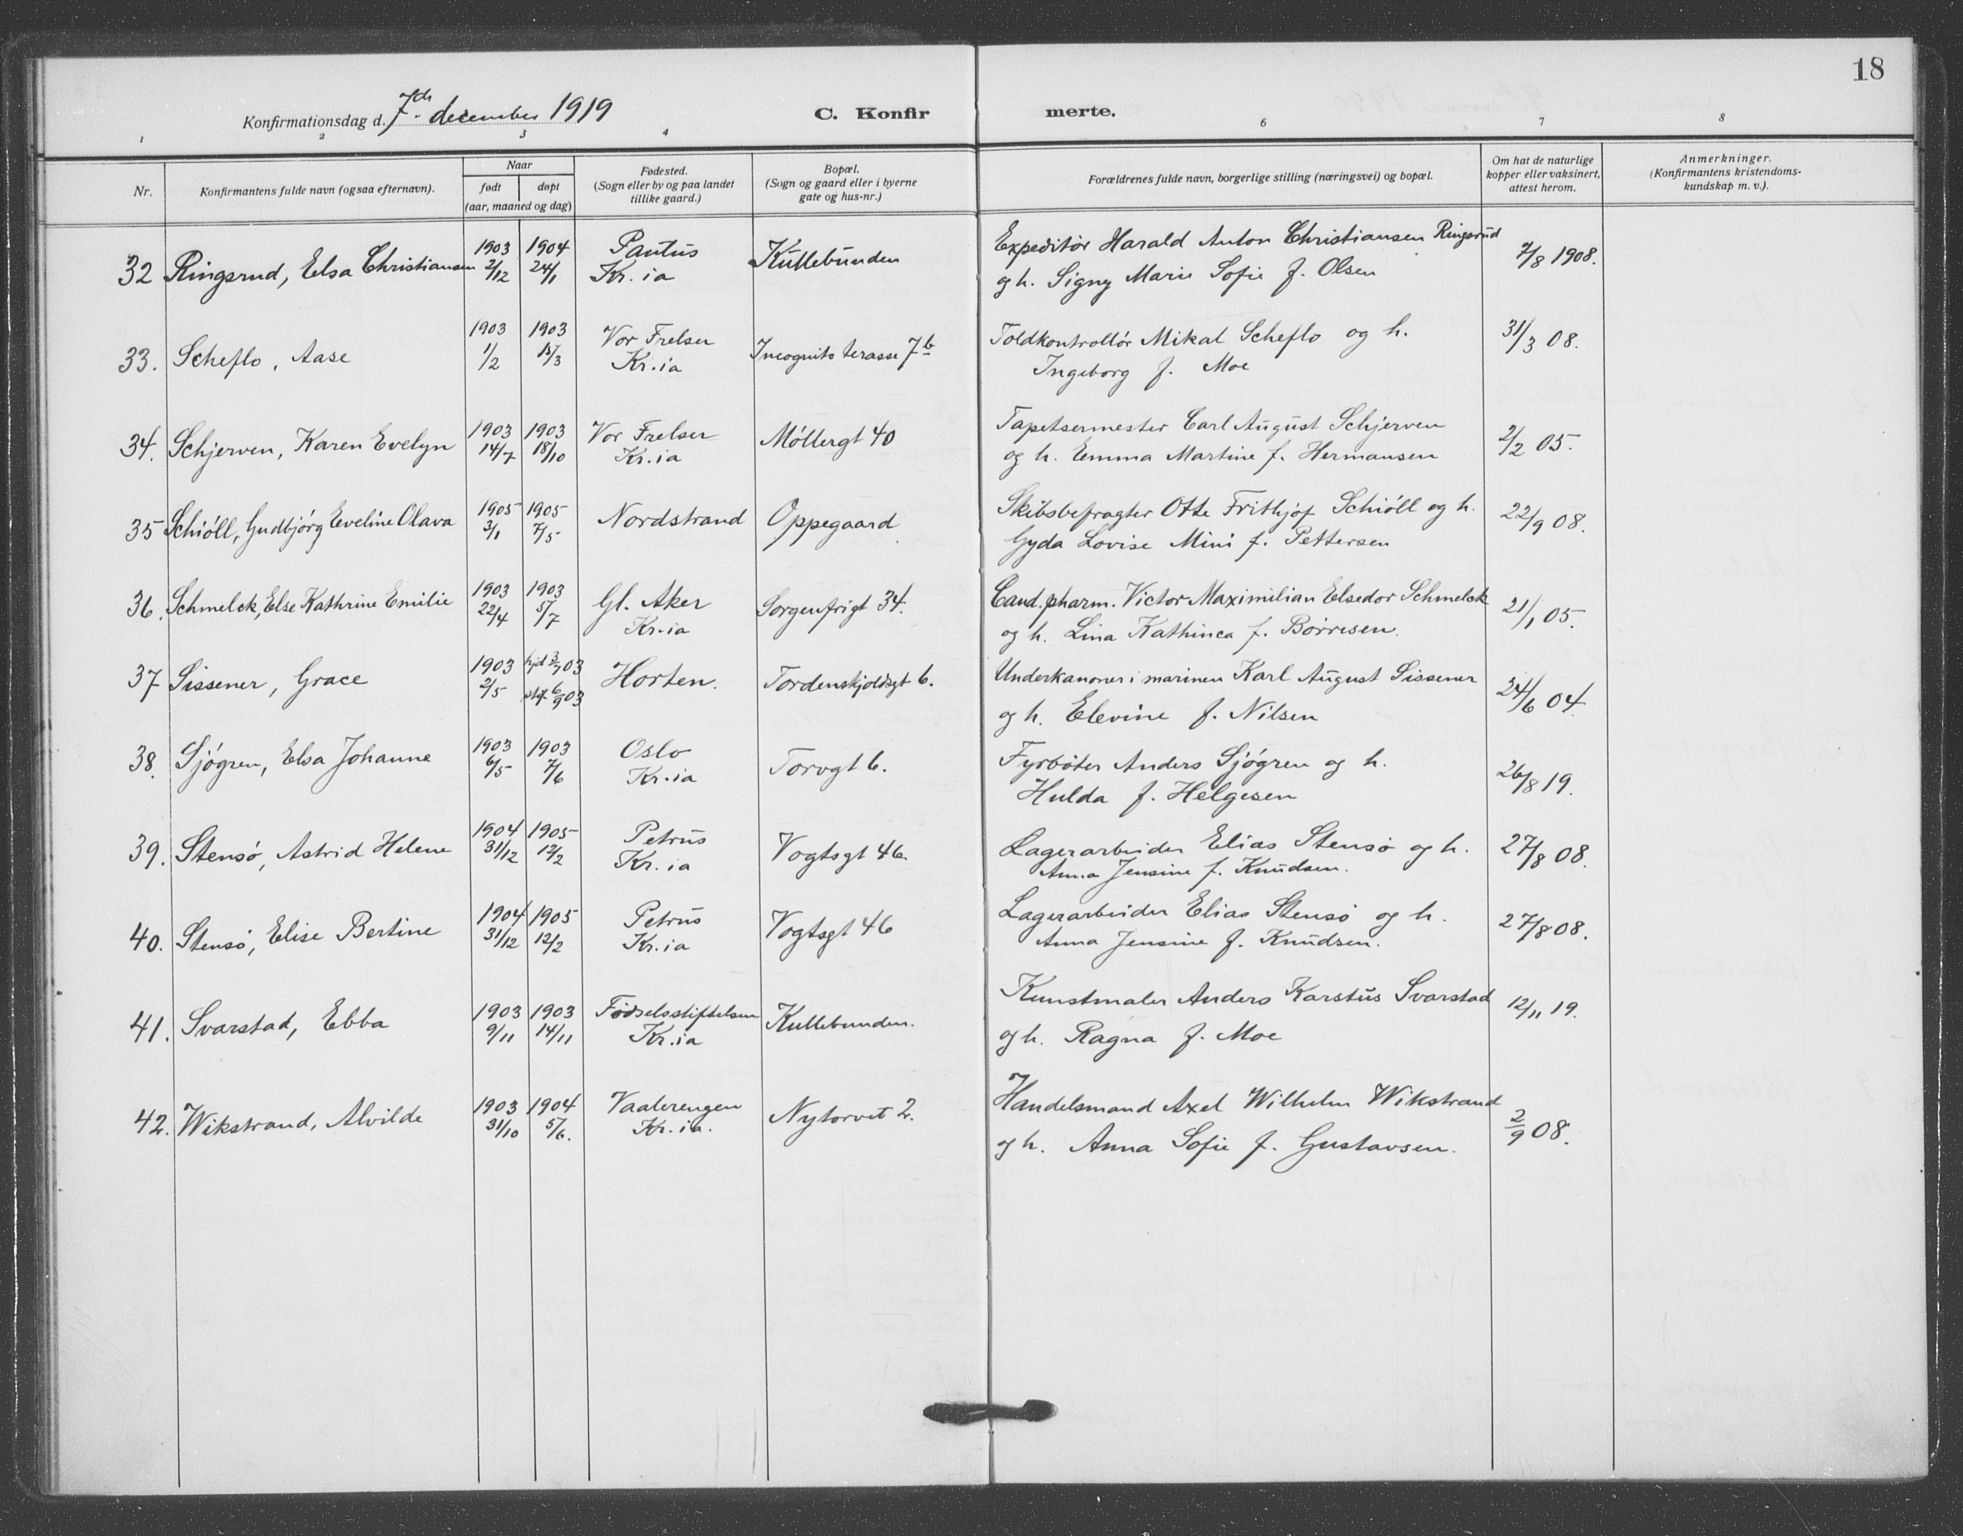 18
Konfirmationsdag d. 7de december 1919
C. Konfir merte.
1 2 3 4 6 7 8
Nr.
Konfirmantens fulde navn (ogsaa efternavn).
Naar
født døpt
(aar, maaned og dag)
Fødested.
(Sogn eller by og paa landet
tillike gaard.)
Bopæl.
(Sogn og gaard eller i byerne
gate og hus-nr.)
Forældrenes fulde navn, borgerlige stilling (næringsvei) og bopæl.
Om hat de naturlige
kopper eller vaksinert,
attest herom.
Anmerkninger.
(Konfirmantens kristendoms-
kundskap m. v.).
32 Ringsrud, Elsa Christiansen 1903 2/12 1904 24/1 Paulus Kr.ia Kullebunden
Expeditør Harald Anton Christiansen Ringsrud
og h. Signy Marie Sofie f. Olsen 7/8 1908.
33. Scheflo, Aase 1903 1/2 1903 15/3 Vor Frelser Kr.ia Incognito terasse 7b
Toldkontrollør Mikal Scheflo og h.
Ingeborg f. Moe 31/3 08.
34. Schjerven, Karen Evelyn 1903 14/7 1903 18/10 Vor Frelser Kr.ia Møllergt 40
Tapetsermester Carl August Schjerven
og h. Emma Martine f. Hermansen 2/2 05.
35 Schiøll, Gudbjørg Eveline Olava 1905 3/1 1905 7/5 Nordstrand Oppegaard
Skibsbefragter Otte Frithjof Schiøll og h.
Gyda Lovise Mini f. Pettersen 22/9 08.
36. Schmelck, Else Kathrine Emilie 1903 22/4 1903 5/7 Gl. Aker Kr.ia Sorgenfrigt 34.
Cand. pharm. Victor Maximilian Elsedor Schmelck
og h. Lina Kathinca f. Børresen. 21/1 05.
37 Sissener, Grace 1903 2/5 hjd 3/7 03 stf 6/9 03 Horten. Tordenskjoldsgt 6.
Underkanoner i marinen Karl August Sissener
og h. Elevine f. Nilsen 24/6 04.
38. Sjøgren, Elsa Johanne 1903 6/5 1903 7/6 Oslo Kr.ia Torvgt 6.
Fyrbøter Anders Sjøgren og h.
Hulda f. Helgesen 26/8 19.
39. Stensø, Astrid Helene 1904 31/12 1905 12/2 Petrus Kr.ia Vogtsgt 46.
Lagerarbeider Elias Stensø og h.
Anna Jensine f. Knudsen. 27/8 08.
40. Stensø, Elise Bertine 1904 31/12 1905 12/2 Petrus Kr.ia Vogtsgt 46
Lagerarbeider Elias Stensø og h.
Anna Jensine f. Knudsen. 27/8 08.
41. Svarstad, Ebba 1903 9/11 1903 14/11 Fødselsstiftelsen Kr.ia Kullebunden.
Kunstmaler Anders Karstus Svarstad
og h. Ragna f. Moe 12/11 19.
42. Wikstrand, Alvilde 1903 31/10 1904 5/6. Vaalerengen Kr.ia. Nytorvet 2.
Handelsmand Axel Wilhelm Wikstrand
og h. Anna Sofie f. Gustavsen. 2/9 08.